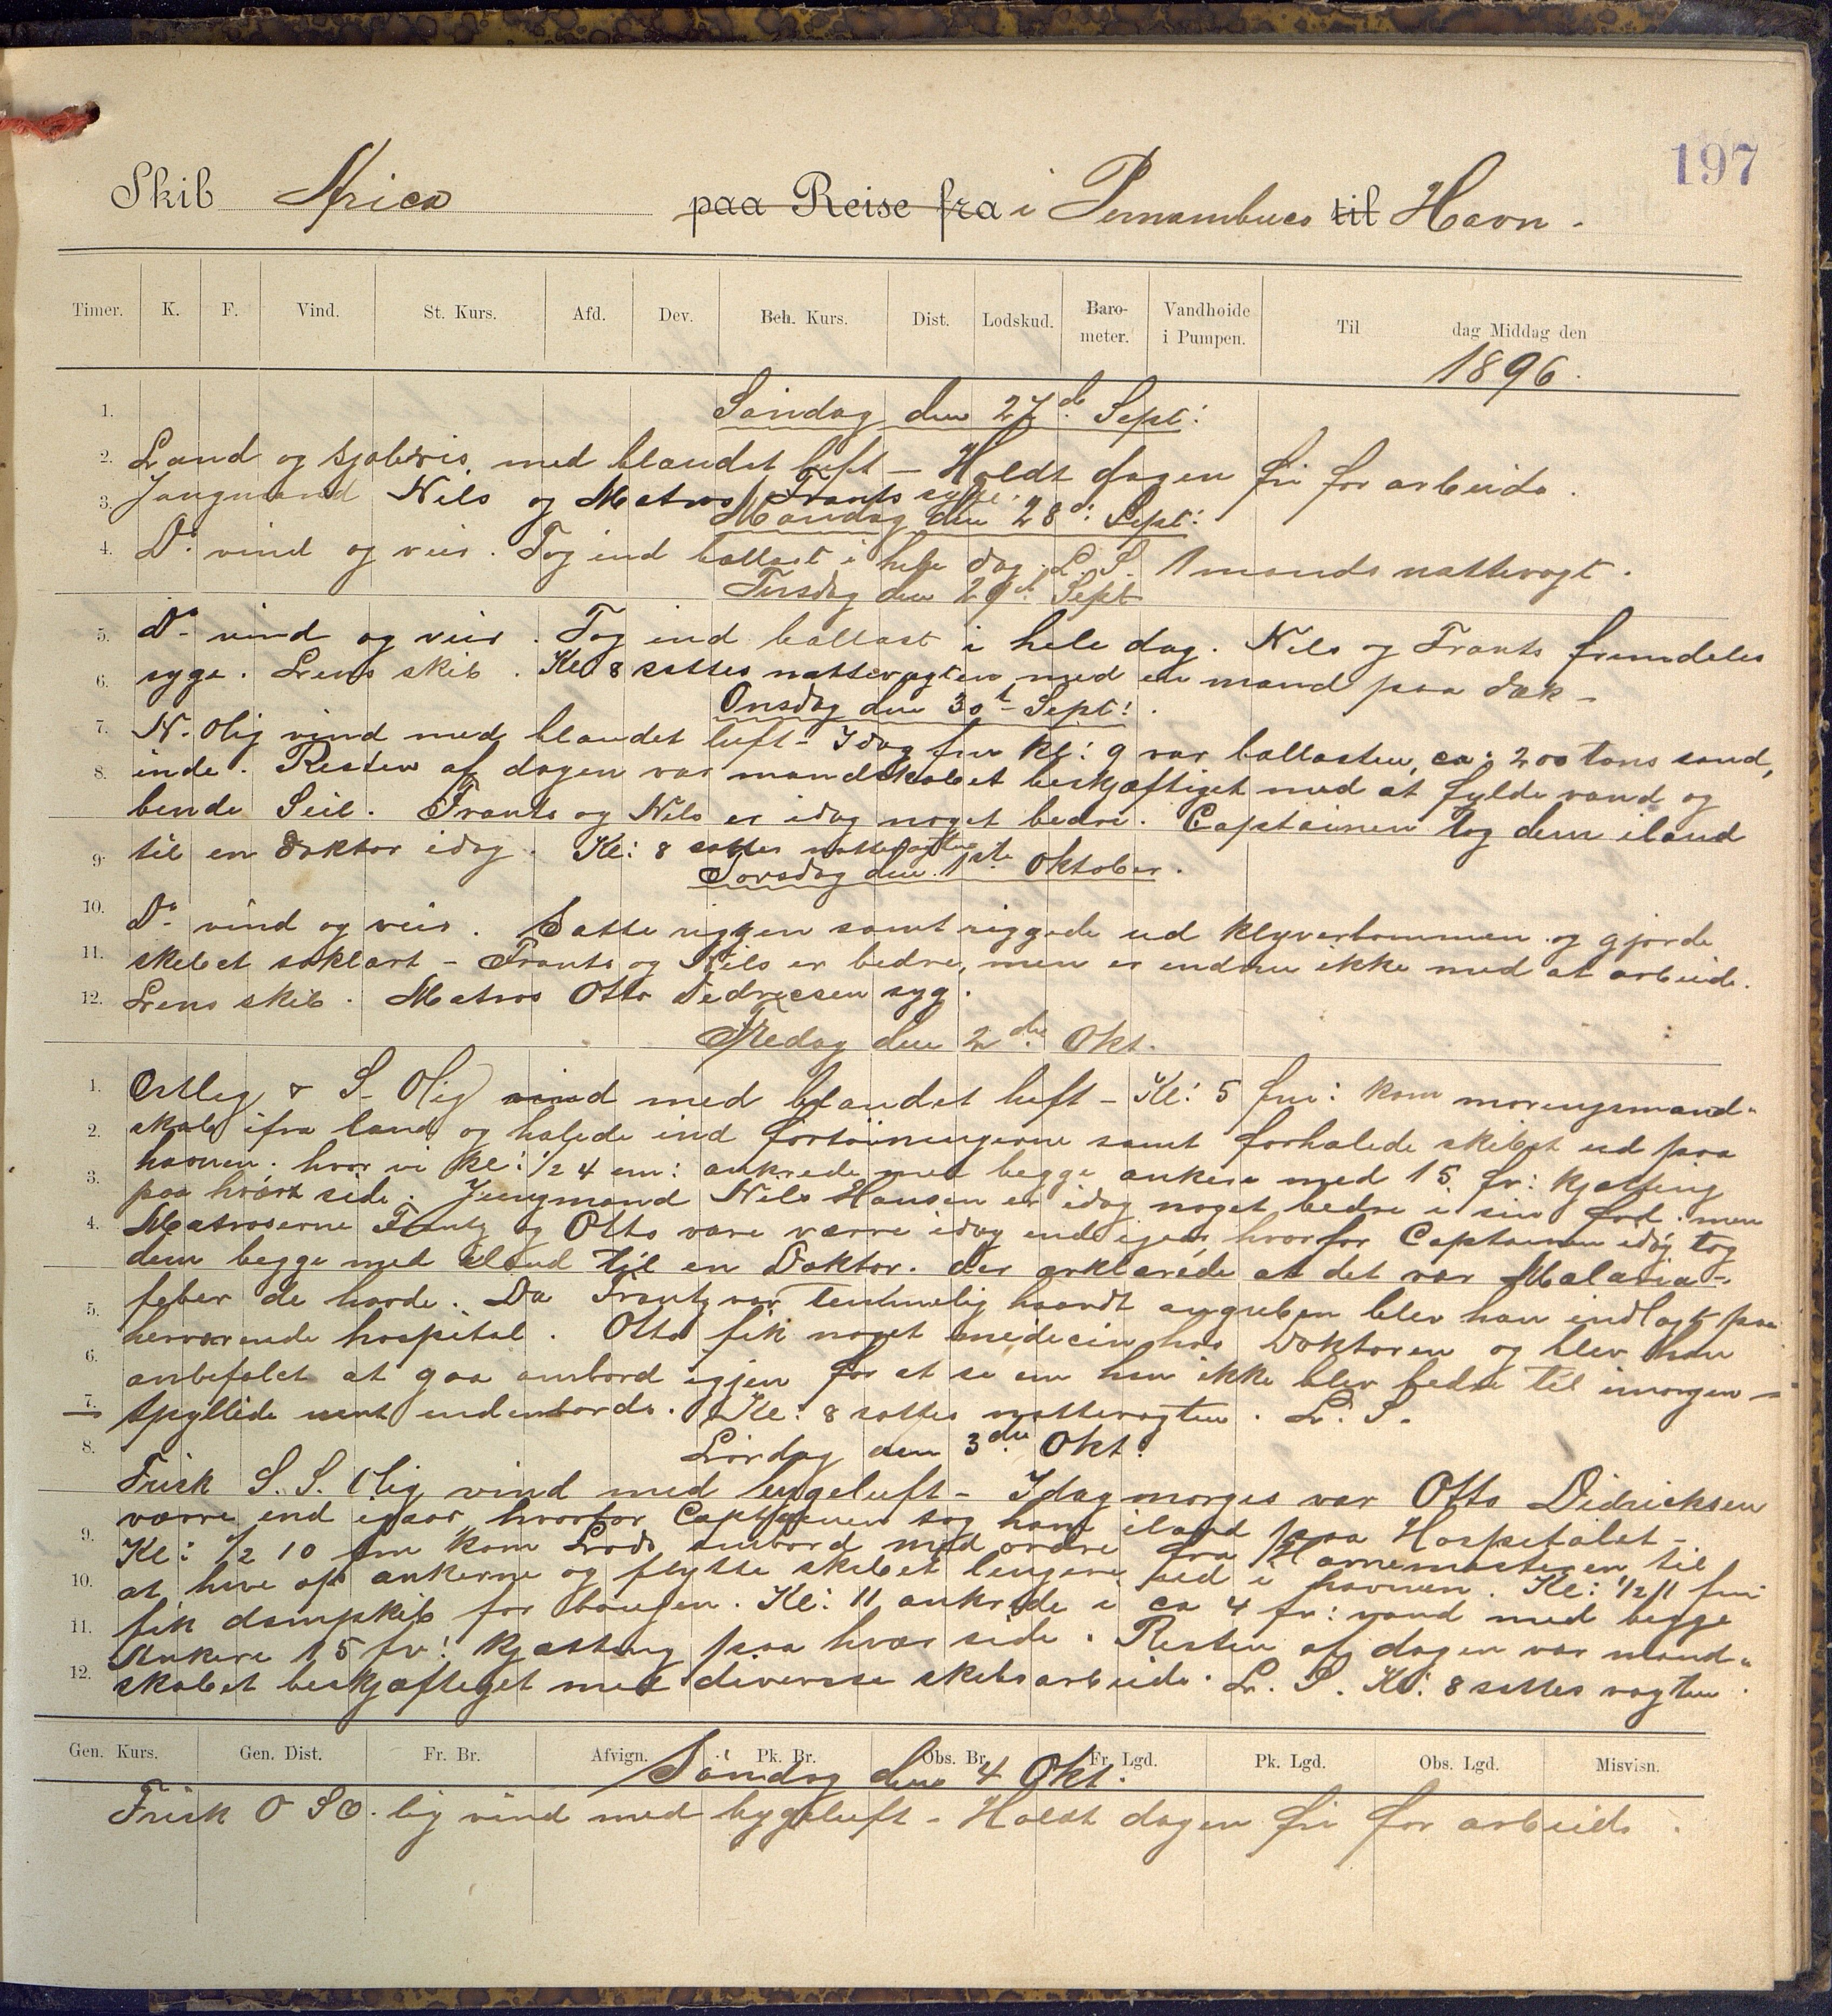 197
Skib Africa paa Reise fra i Pernambuco til Havn.
Timer. K. F. Vind. St. Kurs. Afd. Dev. Beh. Kurs. Dist. Lodskud. Baro-meter. Vandhøide i Pumpen. Til dag Middag den
1896.
1. Söndag den 27de Sept:
2. Land og sjøbris, med blandet luft - Holdt dagen fri for arbeide.
3. Jungmand Nils og Matros Frants syge.
Mandag den 28d: Sept:
4. Do. vind og veir. Tog ind ballast i hele dag. L. S. 1 mands nattevagt.
Tirsdag den 29d. Sept
5. Do. vind og veir. Tog ind ballast i hele dag. Nils og Frants fremdeles
6. syge. Lens skib. Kl 8 sattes nattevagten med en mand paa dæk -
Onsdag den 30t Sept!
7. N. Olig vind med blandet luft - Idag fm kl: 9 var ballasten, ca: 200 tons sand,
8. inde. Resten af dagen var mandskabet beskjæftiget med at fylde vand og
bende Seil. Frants og Nils er idag noget bedre. Captainen tog dem iland
9. til en Doktor idag. Kl: 8 sattes nattevagten
Torsdag den 1ste Oktober.
10. Do. vind og veir. Satte riggen samt riggede ud klyverbommen og gjorde
11. skibet søklart - Frants og Nils er bedre, men er endnu ikke med at arbeide.
12. Lens skib. Matros Otto Dedricsen syg.
Fredag den 2den Okt.
1. Østlig & S. Olig vind med blandet luft - Kl: 5 fm: kom moringsmand-
2. skab ifra land og halede ind fortöiningerne samt forhalede skibet ud paa
havnen. hvor vi kl: 1/2 4 em: ankrede med begge ankere med 15 fv: kjætting
3. paa hvert side. Jungmand Nils Hansen er idag noget bedre i sin fod. men
4. Matroserne Frantz og Otto vare værre idag end igaar, hvorfor Captainen idag tog
dem begge med iland til en Doktor. der erklærede at det var Malaria-
5. feber de havde. Da Frantz var temmelig haardt angreben blev han indlagt paa
herværende hospital. Otto fik noget medecin hos Doktoren og blev han
6. anbefalet at gaa ombord igjen for at se om han ikke blev bedre til imorgen -
7. Spyllede rent indenbords. Kl: 8 sattes nattevagten. L. S.
8. Lördag den 3die Okt.
Frisk S. S. Olig vind med bygeluft - Idag morges var Otto Didricksen
værre end igaar, hvorfor Captainen tog ham iland paa Hospitalet -
9. Kl: 1/2 10 fm kom Lods ombord med ordre fra Havnemesteren til
10. at hive op ankerne og flytte skibet lengere ud i havnen. Kl: 1/2 11 fm
fik dampskib for bougen. Kl: 11 ankrede i ca 4 fv: vand med begge
11. Ankere 15 fv: kjætting paa hver side. Resten af dagen var mand-
12. skabet beskjæftiget med diversse skibsarbeide. L. S. Kl: 8 sattes vagten.
Gen. Kurs. Gen. Dist. Fr. Br. Afvign. Pk. Br. Obs. Br. Fr. Lgd. Pk. Lgd. Obs. Lgd. Misvisn.
Söndag den 4 Okt.
Frisk O S O. lig vind med bygeluft - Holdt dagen fri for arbeide.